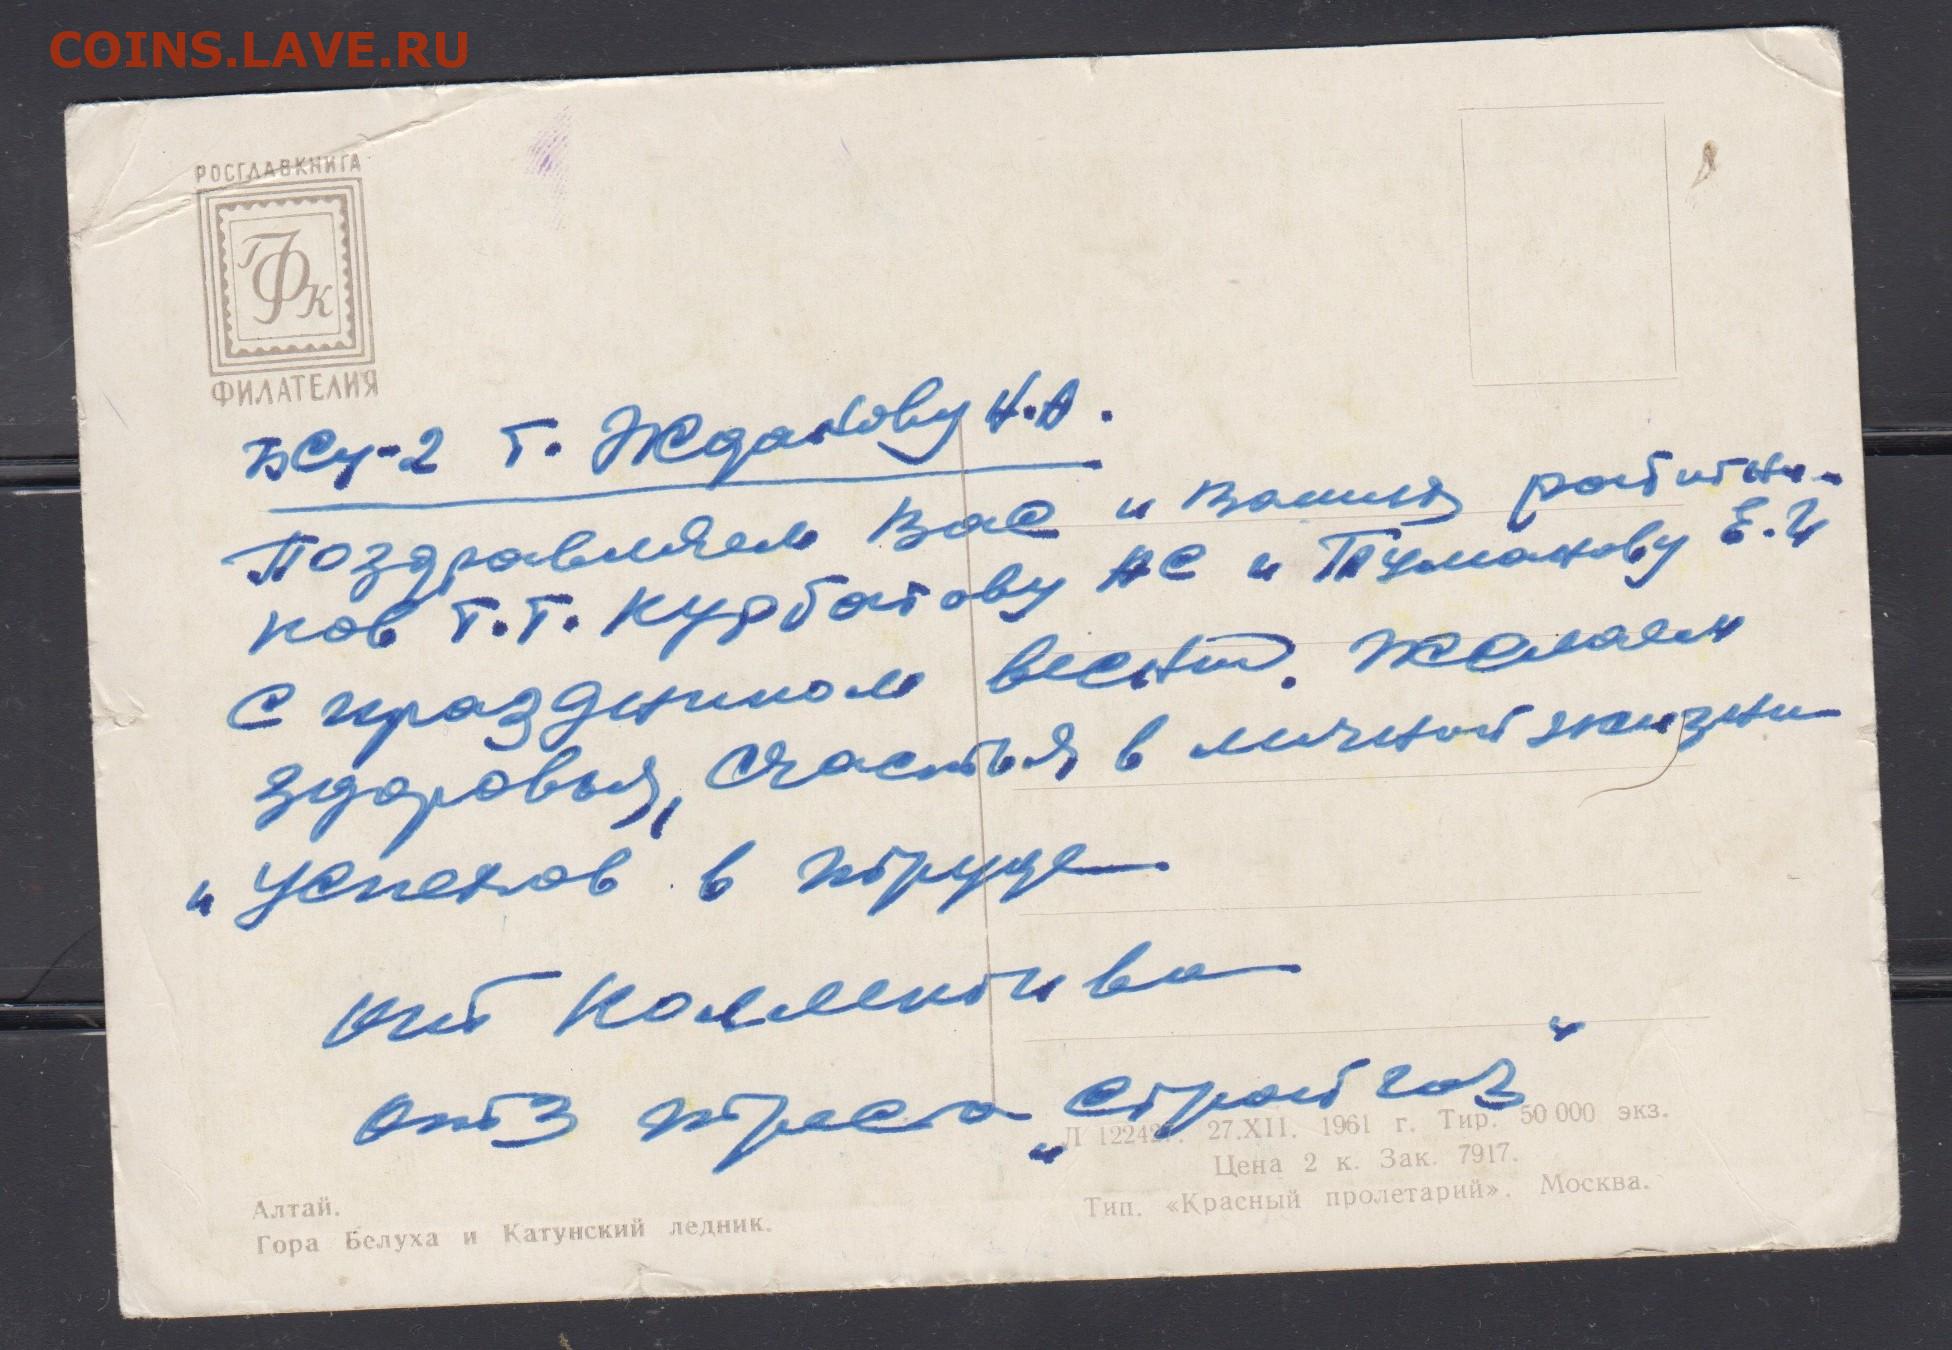 COINS.LAVE.RU
РОСГЛАВКНИГА
ГФК
ФИЛАТЕЛИЯ
БСУ-2 т. Жданову Н.А.
Поздравляем Вас и Ваших работни-
ков т.т. Курбатову АС и Туманову Е.И
с праздником весны. Желаем
здоровья, счастья в личной жизни
и успехов в труде.
От коллектива
треста „Стройгаз"
Л 12242. 27.XII. 1961 г. Тир. 50 000 экз.
Цена 2 к. Зак. 7917.
Тип. «Красный пролетарий». Москва.
Алтай.
Гора Белуха и Катунский ледник.